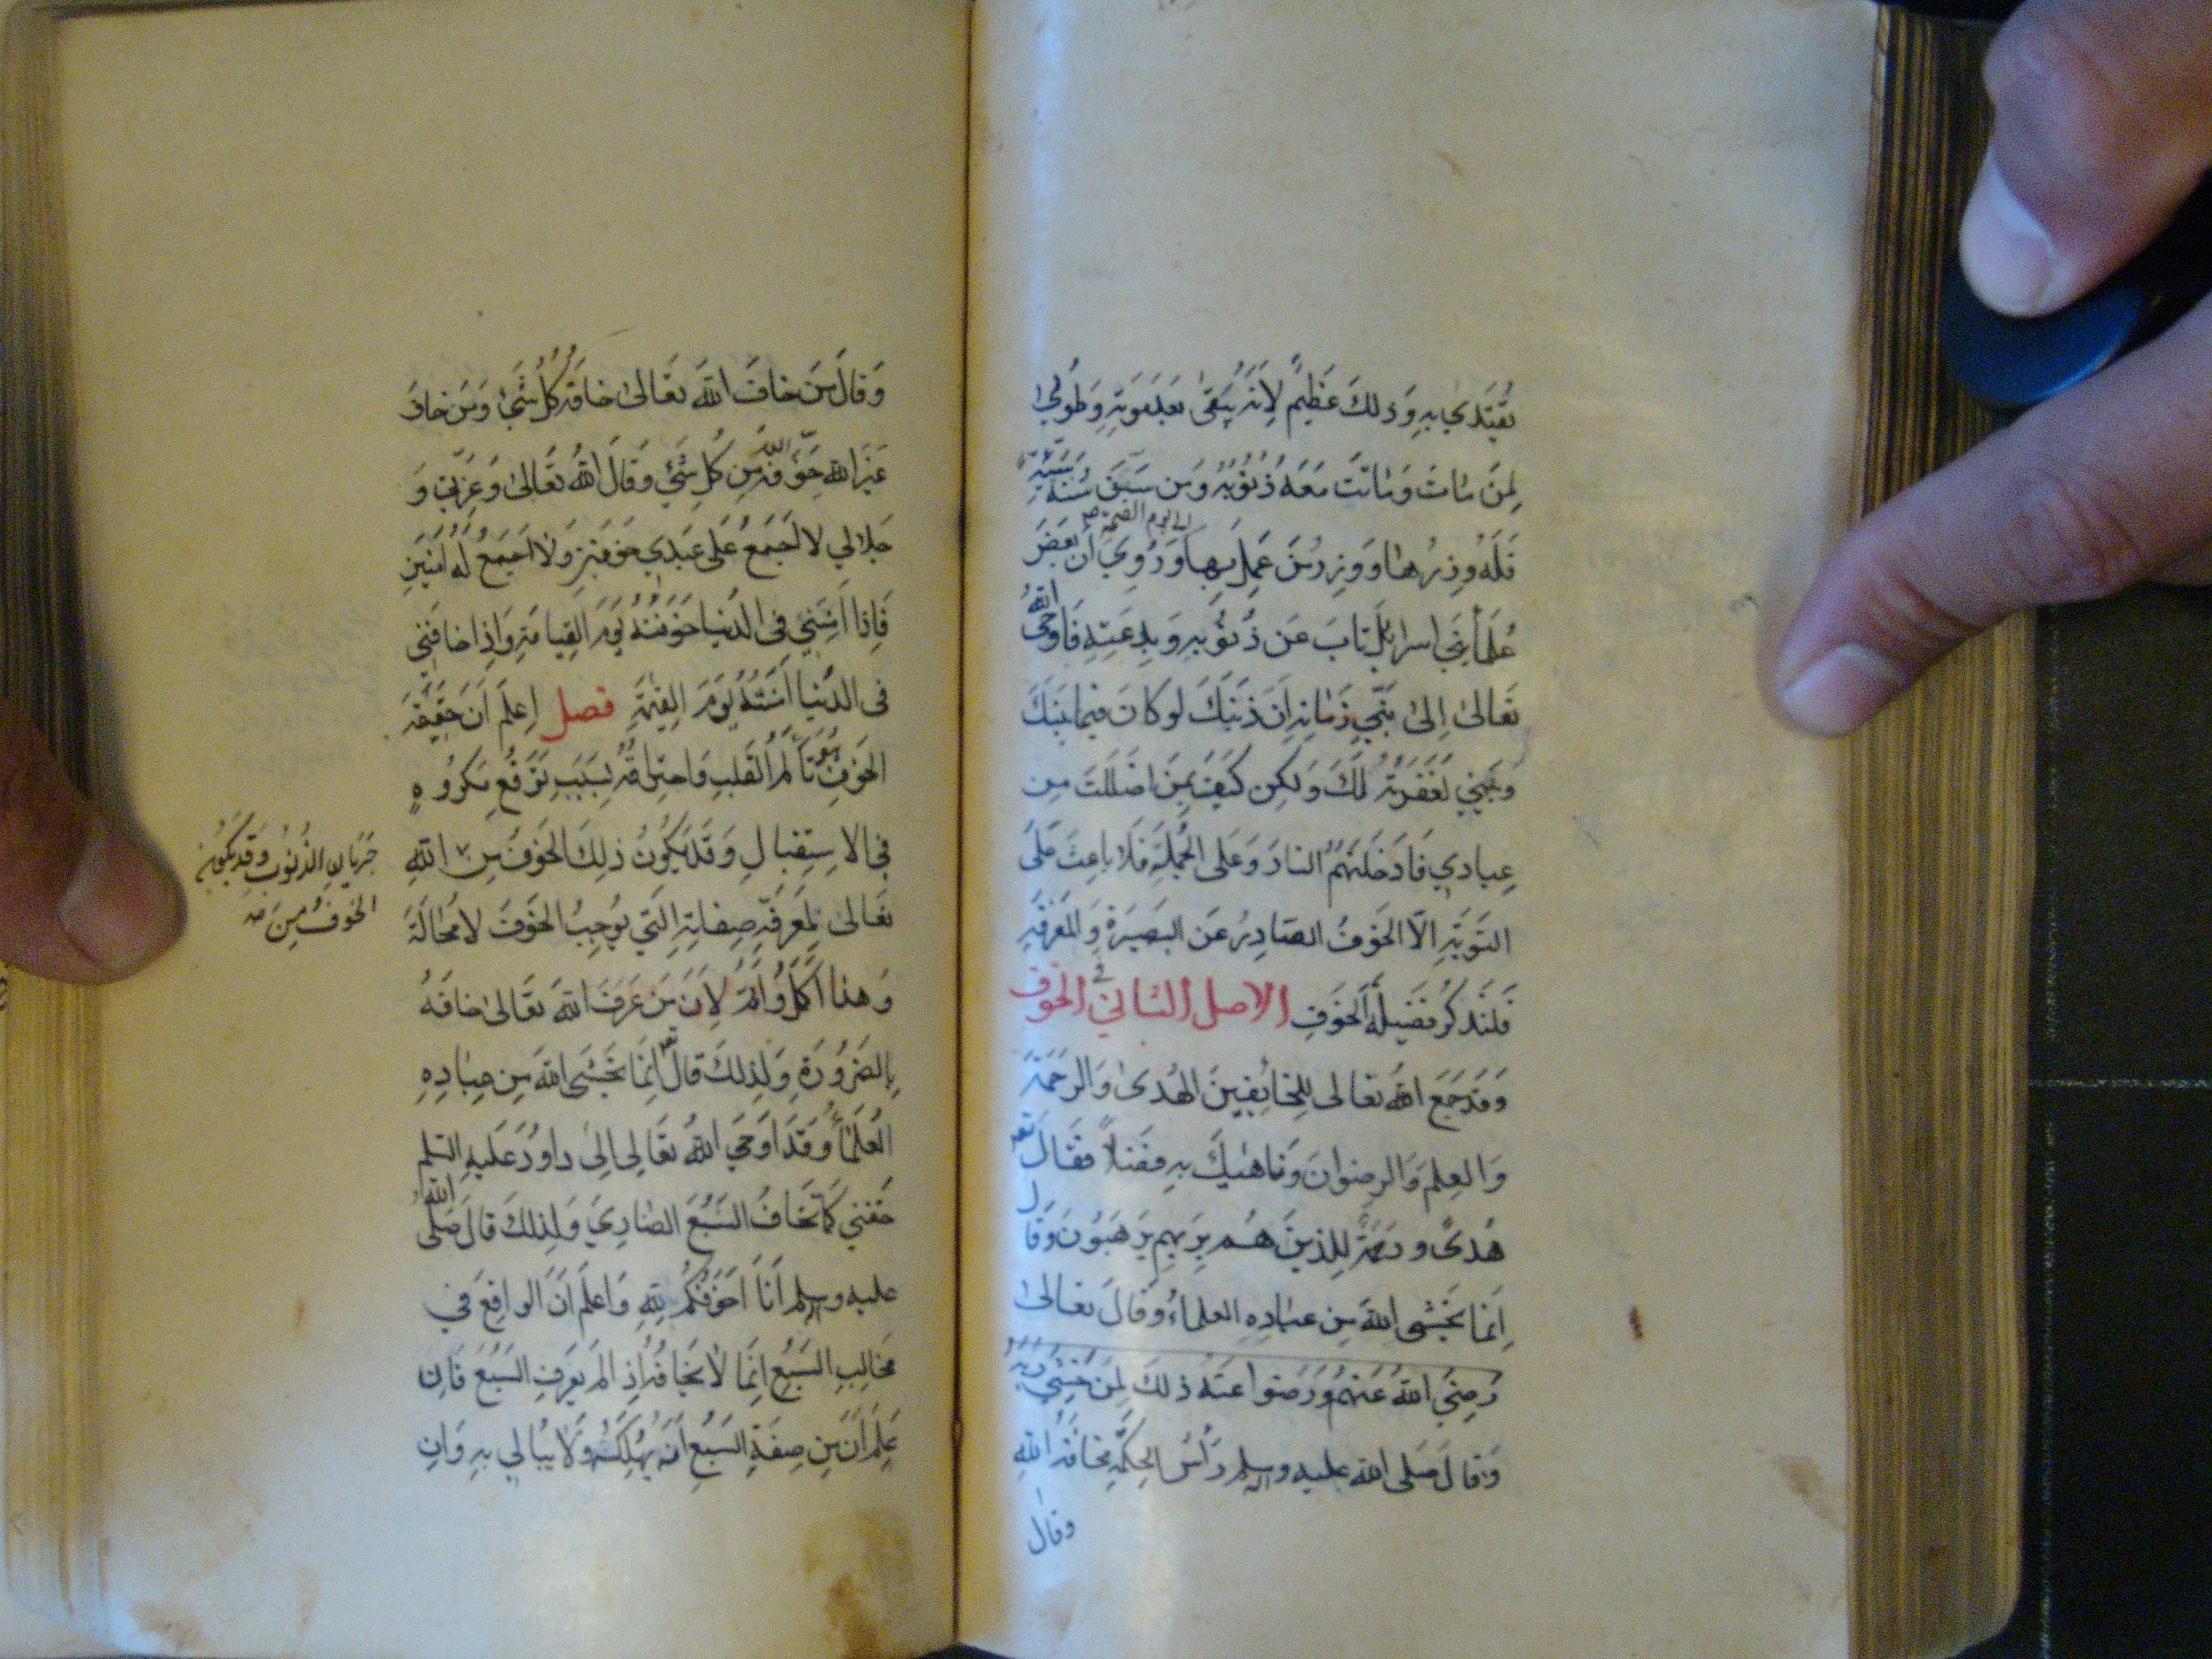 يقتدي به وذلك عظيم لانه يبقى بعد موته وطوبى
لمن مات وماتت معه ذنوبه ومن سن سنة سيئة
فله وزرها ووزر من عمل بها الى يوم القيمة وروي ان بعض
علماء بني اسرائل تاب عن ذنوبه وبدعته فاوحى الله
تعالى الى نبي زمانه ان ذنبك لو كان فيما بينك
وبيني لغفرته لك ولكن كيف بمن اضللت من
عبادي فادخلتهم النار وعلى الجملة فلا باعث على
التوبة الا الخوف الصادر عن البصيرة والمعرفة
فلنذكر فضيلة الخوف الاصل الثاني في الخوف
وقد جمع الله تعالى للخائفين الهدى والرحمة
والعلم والرضوان وناهيك به فضلا فقال تعه
هدى ورحمة للذين هم لربهم يرهبون وقال
انما يخشى الله من عباده العلماء وقال تعالى
رضي الله عنهم ورضوا عنه ذلك لمن خشي ربه
وقال صلى الله عليه وآله وسلم رأس الحكمة مخافة الله
وقال
وقال من خاف الله تعالى خافه كل شئ ومن خاف
غير الله خوفه الله من كل شئ وقال الله تعالى وعزتي و
جلالي لا اجمع على عبدي خوفين ولا اجمع له امنين
فاذا امنني في الدنيا خوفته يوم القيامة واذا خافني
في الدنيا امنته يوم القيمة فصل اعلم ان حقيقة
الخوف هو تألم القلب واحتراقه بسبب توقع مكروه
في الاستقبال وقد يكون ذلك الخوف من الله
جريان الذنوب وقد يكون
الخوف من صه
تعالى لمعرفة صفاته التي يوجب الخوف لا محالة
وهذا اكمل واتم لان من عرف الله تعالى خافه
بالضرورة ولذلك قال تعه انما يخشى الله من عباده
العلماء وقد اوحي الله تعالى الى داود عليه السلم
خفني كما تخاف السبع الضاري ولذلك قال صلى الله
عليه وآله وسلم انا اخوفكم لله واعلم ان الواقع في
مخالب السبع انما لا يخافه اذ الم يعرف السبع فان
علم ان من صفة السبع انه يهلكه ولا يبالي به وان